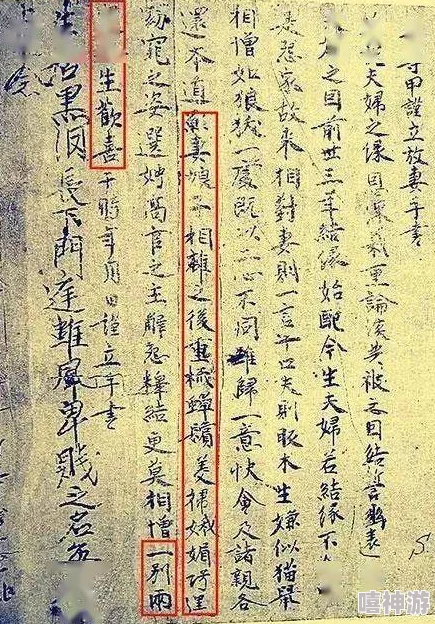 甲謹立放妻手書
夫婦之緣恩深義重論談共被之因結誓幽遠
之因前世三年結緣始配今生夫婦若結緣不
是怨家故來相對妻則一言十口夫則販木生嫌似猫鼠
相憎如狼一處既以二心不同難歸一意快會及諸親各
還本道願妻娘子相離之後重梳蟬鬢美掃娥媚巧逞
窈窕之姿選娉高官之主解怨釋結更莫相憎一別兩
生歡喜于時年月日謹立手書
黑淚長下門庭難卑賤之名
嘻神游